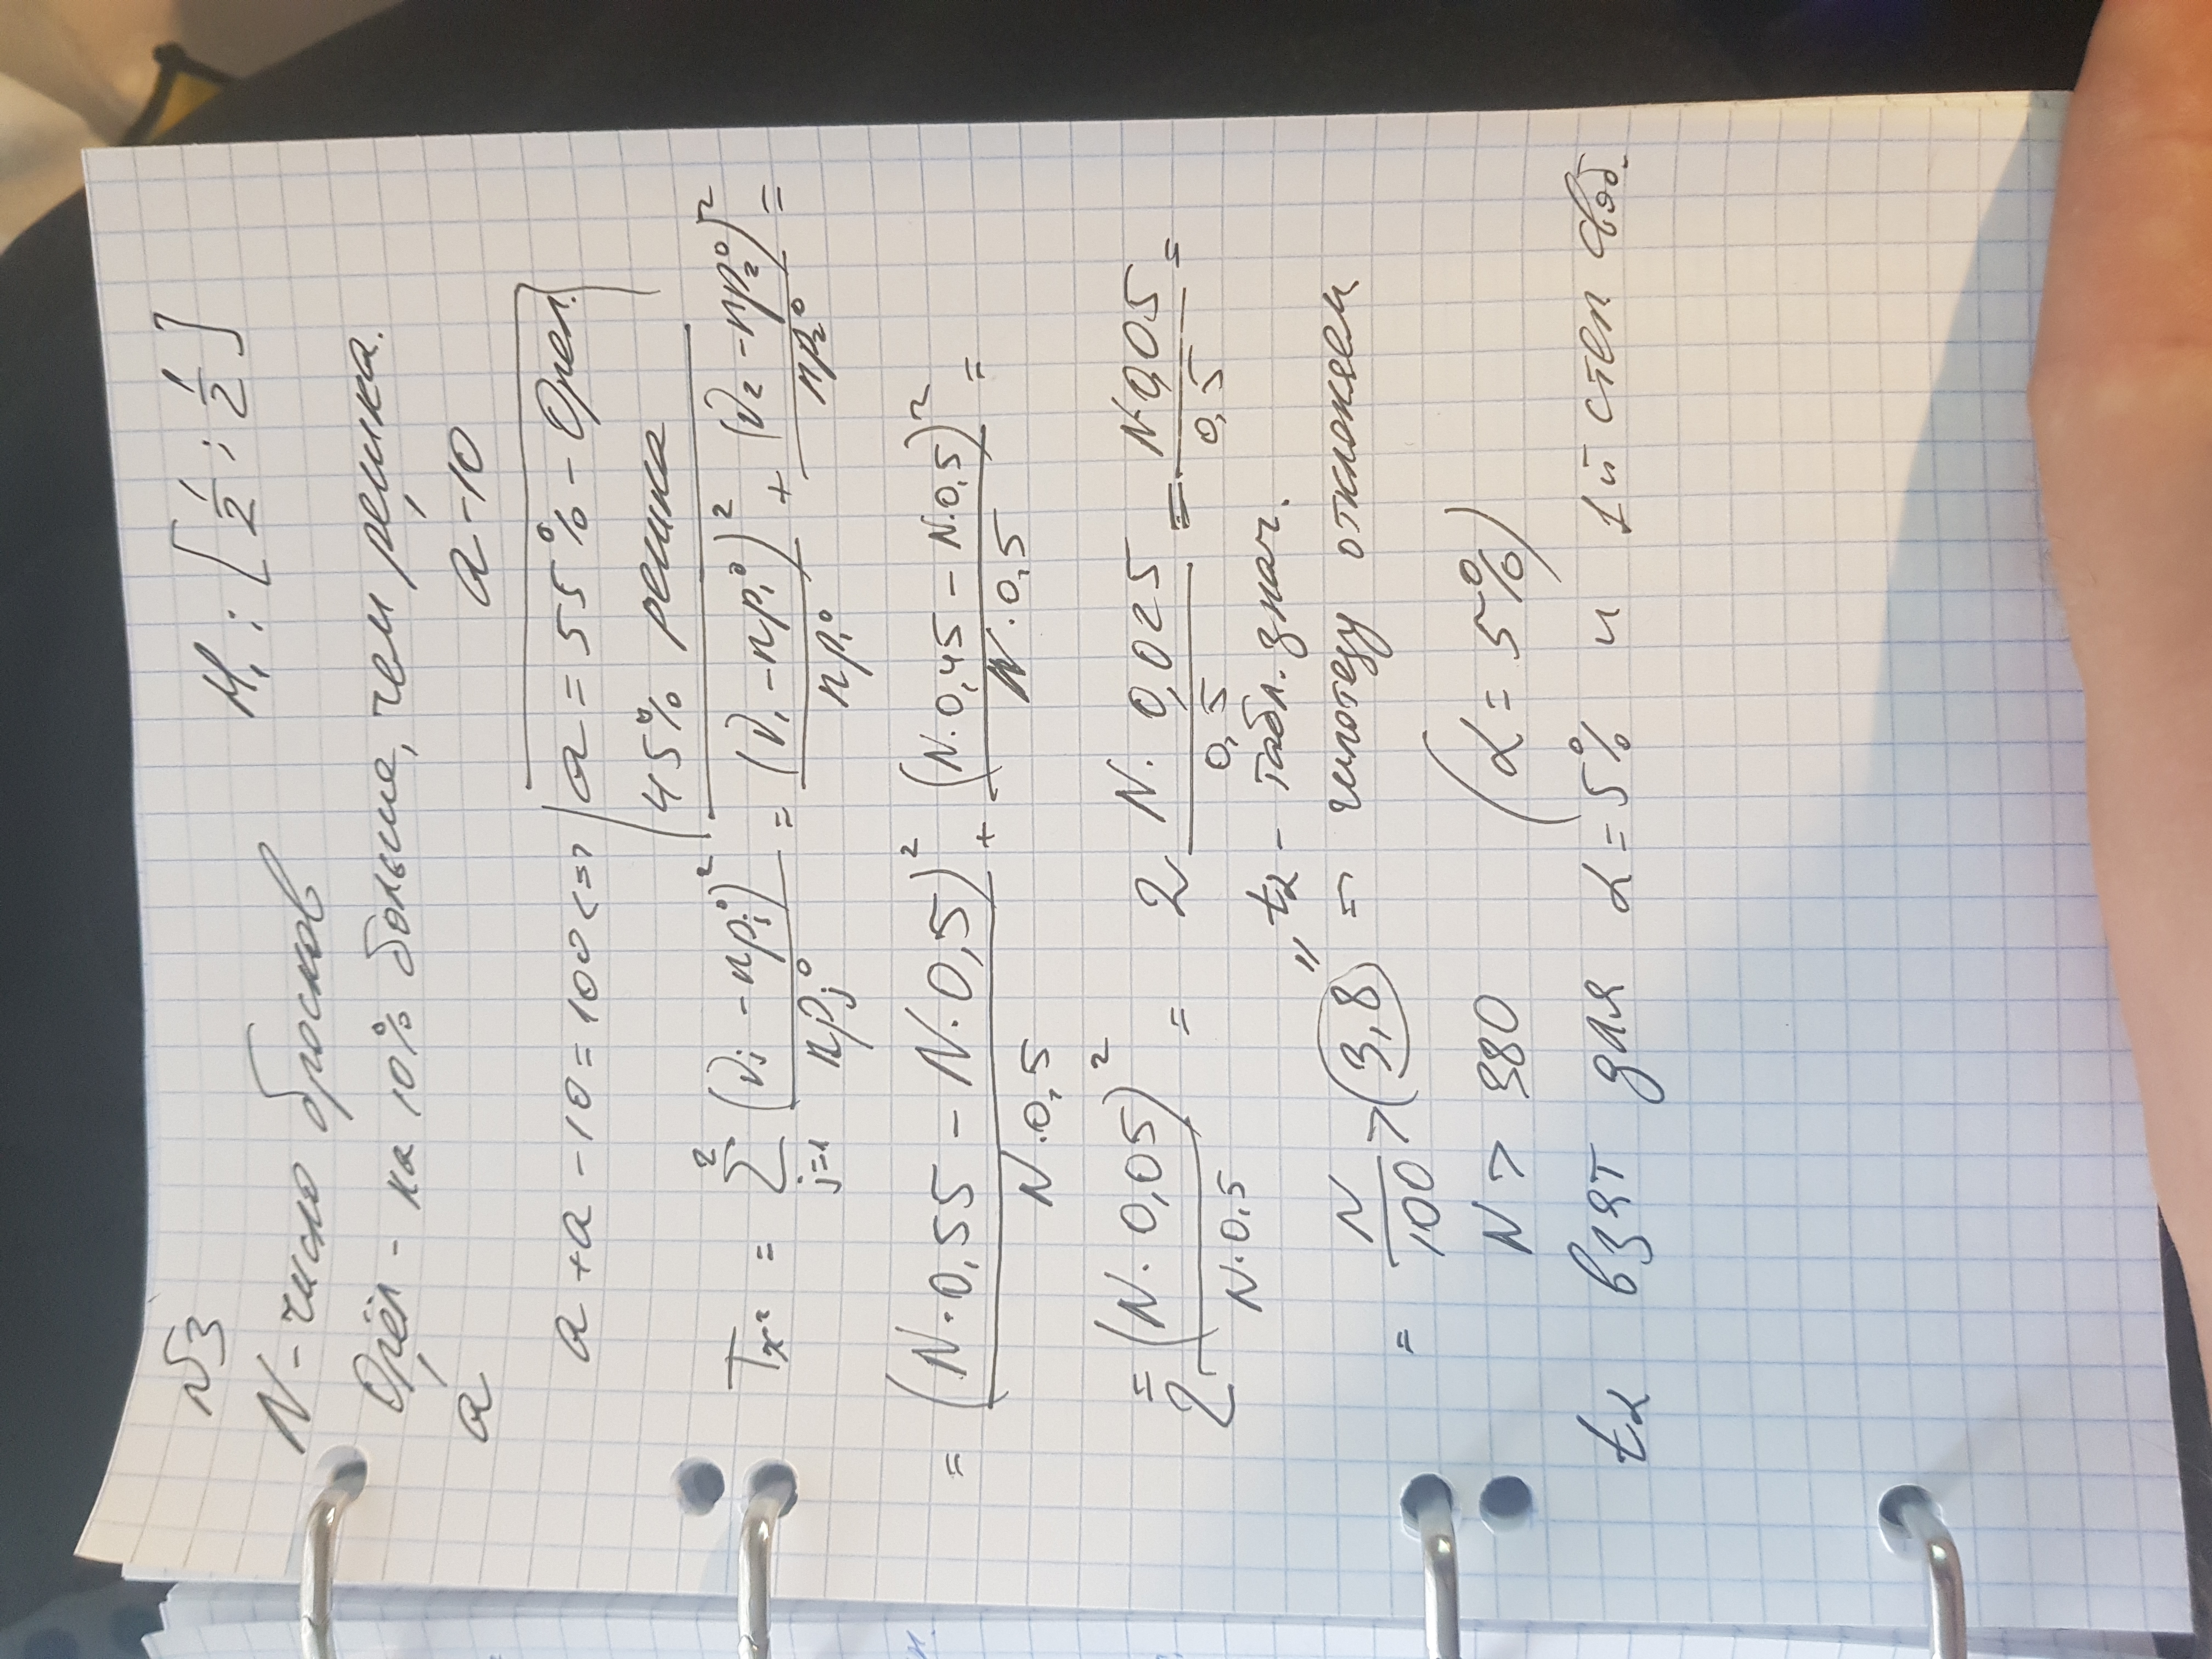 №3
H₁ : [1/2 ; 1/2]
N - число бросков
Орёл - на 10% больше, чем решка.
a a - 10
a + a - 10 = 100 <=> a = 55% - Орел.
45% решка
T_χ² = Σ_{j=1}^{2} (ν_j - np_j⁰)² / np_j⁰ = (ν₁ - np₁⁰)² / np₁⁰ + (ν₂ - np₂⁰)² / np₂⁰ =
= (N · 0,55 - N · 0,5)² / N · 0,5 + (N · 0,45 - N · 0,5)² / N · 0,5 =
= 2 (N · 0,05)² / N · 0,5 = 2 N · 0,025 / 0,5 = N · 0,05 / 0,5 =
" t_α - табл. знач.
= N / 100 > 3,8 => гипотезу отклоняем
N > 380 (α = 5%)
t_α взят для α = 5% и 1й степ. своб.